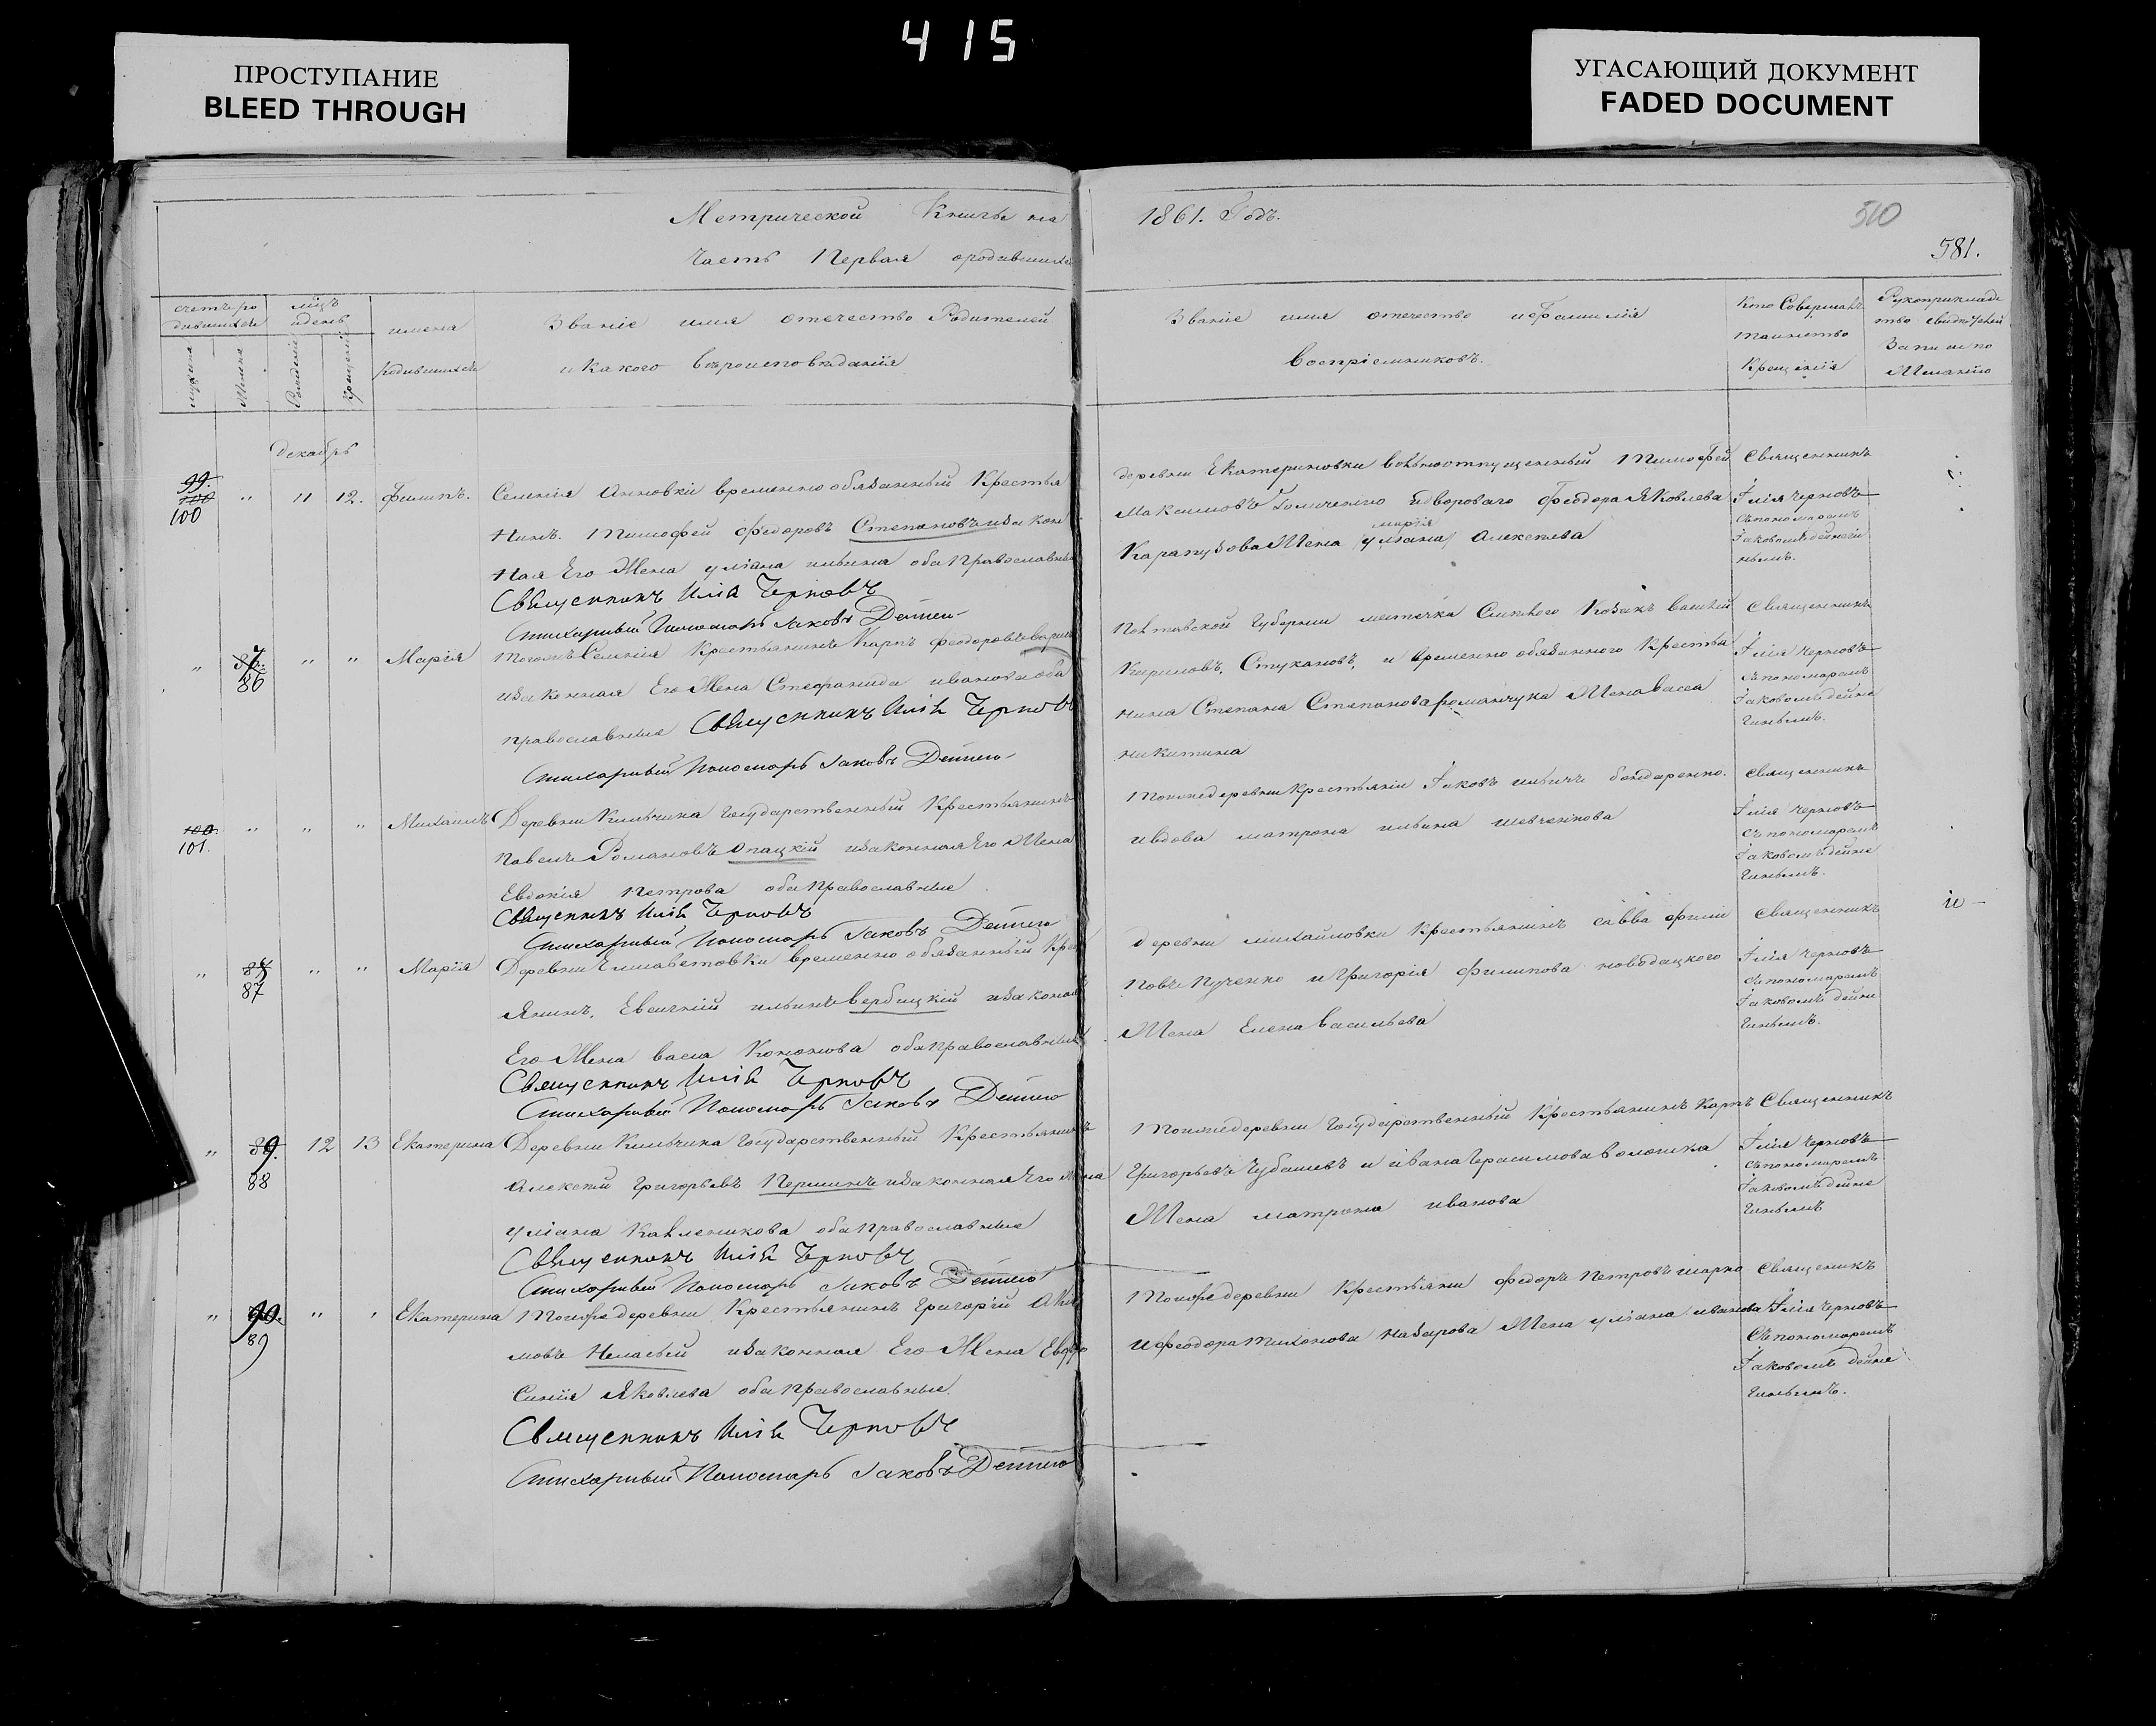 415
ПРОСТУПАНИЕ
BLEED THROUGH
УГАСАЮЩИЙ ДОКУМЕНТ
FADED DOCUMENT
Метрической Книги на
1861. Годъ.
510
581.
Часть Первая ородившихся
счетъ ро
дившихся
мужеска
женска
мцъ
идень
Рожденія
Крещенія
имена
Родившихся
Званіе имя отечество Родителей
икакого вѣроисповѣданія
Званіе имя отечество ифамилія
Воспріемниковъ.
Кто Совершалъ
таинство
Крещенія
Рукоприклад
ство свидѣтелей
Записи по
Желанію
Декабрь
99.
100
100
" 11 12. Филипъ.
Селенія Анновки временно обязанный Крестья
нинъ. Тимофей Федоровъ Степановъ изакон
ная Его Жена уліана ильина оба Православные
Священникъ Илія Черновъ
Стихарный Пономарь Іаковъ
деревни Екатериновки вольноотпущенный Тимофей
Максимовъ идвороваго Феодора Яковлева
марія
Карапузова Жена уліана Алексѣева
Священникъ
Ілія Черновъ
съпономаремъ
Іаковомъ
" 86 " " Марія
Тогожъ Селенія Крестьянинъ Карпъ Феодоровъ
изаконная Его Жена Стефанида иванова оба
православные Священникъ Илія Черновъ
Стихарный Пономарь Іаковъ
Полтавской Губерніи местечка Козакъ Василій
Кириловъ, Стукановъ, и временно обязанного Крестья
нина Степана Степанова романчука Жена васса
никитина
Священникъ
Ілія Черновъ
съпономаремъ
Іаковомъ
100
101.
" " " Михаилъ
Деревни Кильчина Государственный Крестьянинъ
Павелъ Романовъ Опацкій изаконная Его Жена
Евдокія Петрова оба православные
Священникъ Илія Черновъ
Стихарный Пономарь Іаковъ
Тойже деревни Крестьянин Іаковъ ильичъ бондаренко.
ивдова матрона ильина шевченкова
Священникъ
Ілія Черновъ
съпономаремъ
Іаковомъ
" 87 " " Марія
Деревни Елисаветовки временно обязанный Крес
янинъ. Евсигній ильинъ вербицкій изаконая
Его Жена васса Кононова оба православные
Священникъ Илія Черновъ
Стихарный Пономарь Іаковъ
деревни михайловки Крестьянинъ савва фили
повъ Пученко и Григорія филипова новодацкого
Жена Елена васильева
Священникъ
Ілія Черновъ
съпономаремъ
Іаковомъ
" 89. 12 13 Екатерина
88
Деревни Кильчина Государственный Крестьянинъ
Алексѣй Григорьевъ Першинъ изаконная Его Жена
уліана Калленикова оба православные
Священникъ Илія Черновъ
Стихарный Пономарь Іаковъ
Тойже деревни Государственный Крестьянинъ Карпъ
Григорьевъ Чубашевъ и ивана Герасимова волошка
Жена матрона иванова
Священникъ
Ілія Черновъ
съпономаремъ
Іаковомъ
" 90. " " Екатерина
89
Тойже деревни Крестьянинъ Григорій Аки
мовъ изаконная Его Жена Евфро
синія Яковлева оба православные.
Священникъ Илія Черновъ
Стихарный Пономарь Іаковъ
Тойже деревни Крестьяни Федоръ Петровъ
ифеодора тихонова назарова Жена уліана иванова
Священникъ
Ілія Черновъ
Съпономаремъ
Іаковомъ